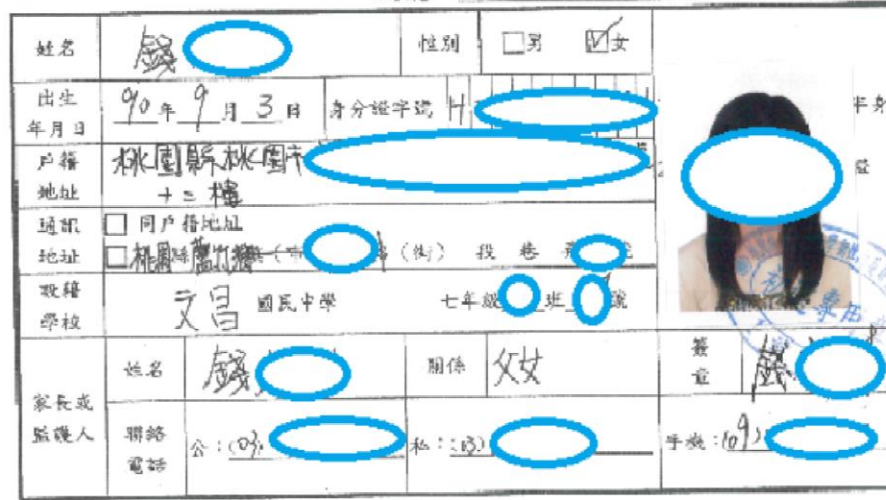 姓名 錢 性別 □男 ☑女
出生年月日 90年9月3日 身分證字號 H
戶籍地址 桃園縣桃園市
十二樓
通訊地址 □同戶籍地址
□桃園縣蘆竹鄉 (街) 段 巷
學校 文昌 國民中學 七年級 班 號
家長或監護人 姓名 錢 關係 父女 簽章 錢
聯絡電話 公：(03) 私：(03) 手機：(09)